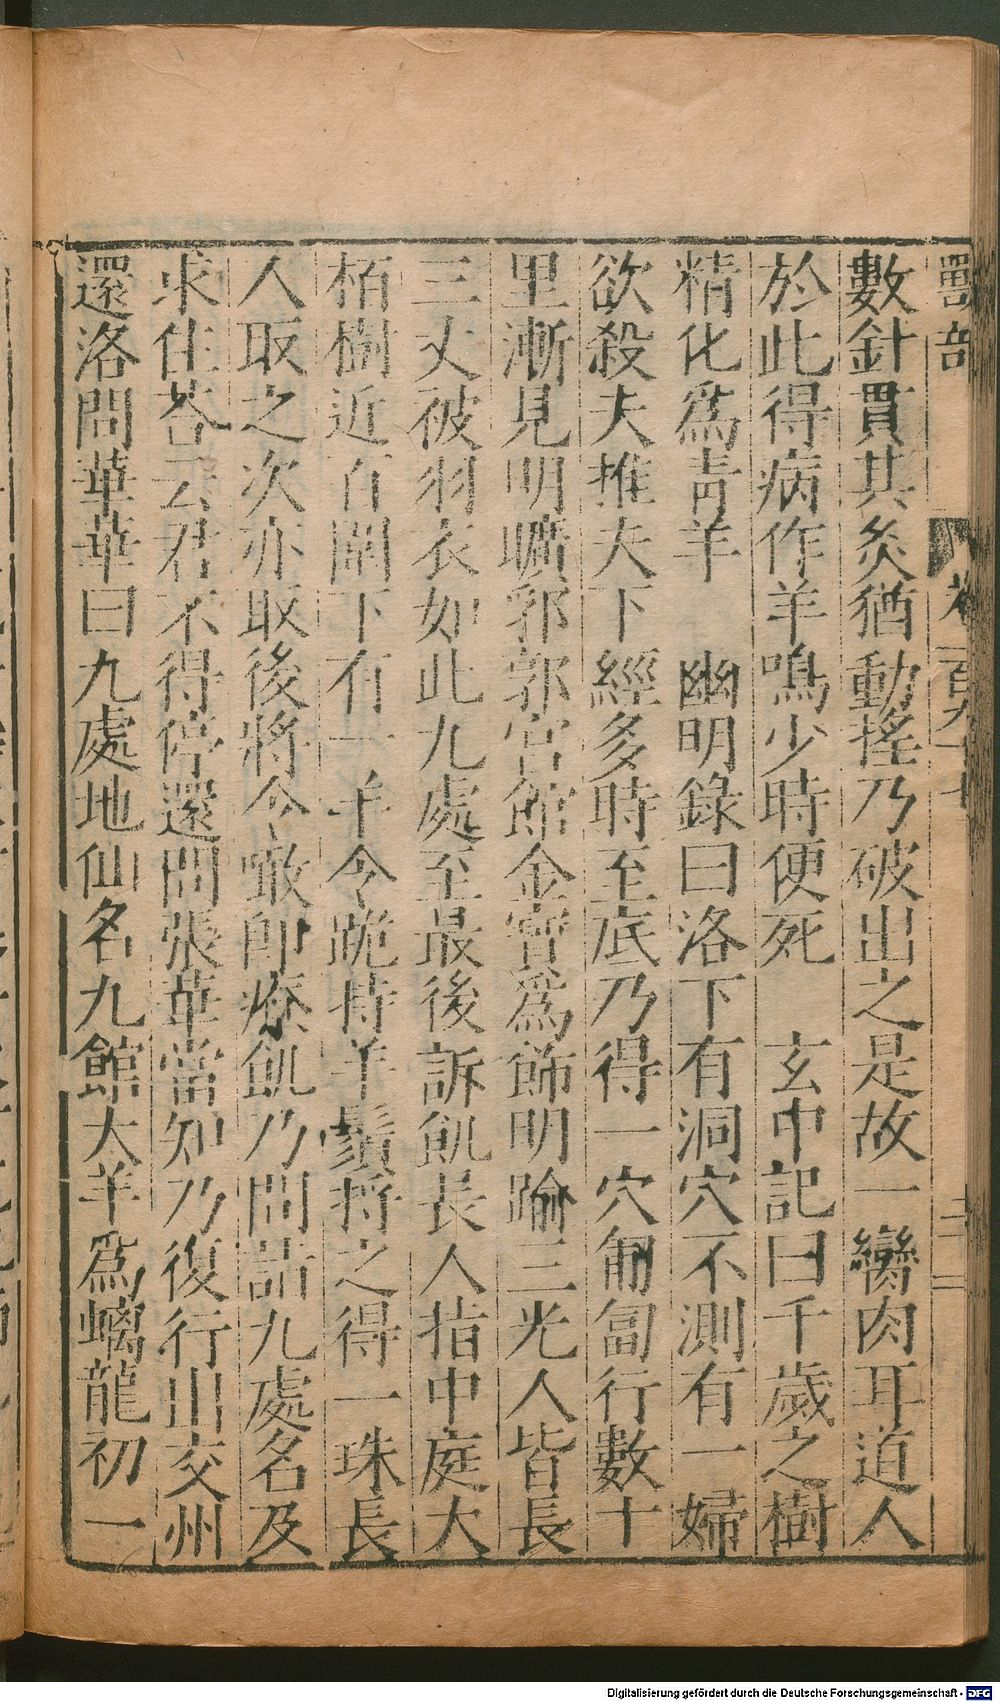 獸部 卷一百九十七 三
數針貫其炙猶動搖乃破出之是故一臠肉耳道人
於此得病作羊鳴少時便死 玄中記曰千歲之樹
精化爲青羊 幽明錄曰洛下有洞穴不測有一婦
欲殺夫推夫下經多時至底乃得一穴匍匐行數十
里漸見明曠郛郭宮館金寶爲飾明踰三光人皆長
三丈被羽衣如此九處至最後訴飢長人指中庭大
栢樹近百圍下有一羊令跪捋羊鬚捋之得一珠長
人取之次亦取後將令噉即療飢乃問詰九處名及
求住荅云君不得停還問張華當知乃復行出交州
還洛問華華曰九處地仙名九館大羊爲螭龍初一
Digitalisierung gefördert durch die Deutsche Forschungsgemeinschaft - DFG